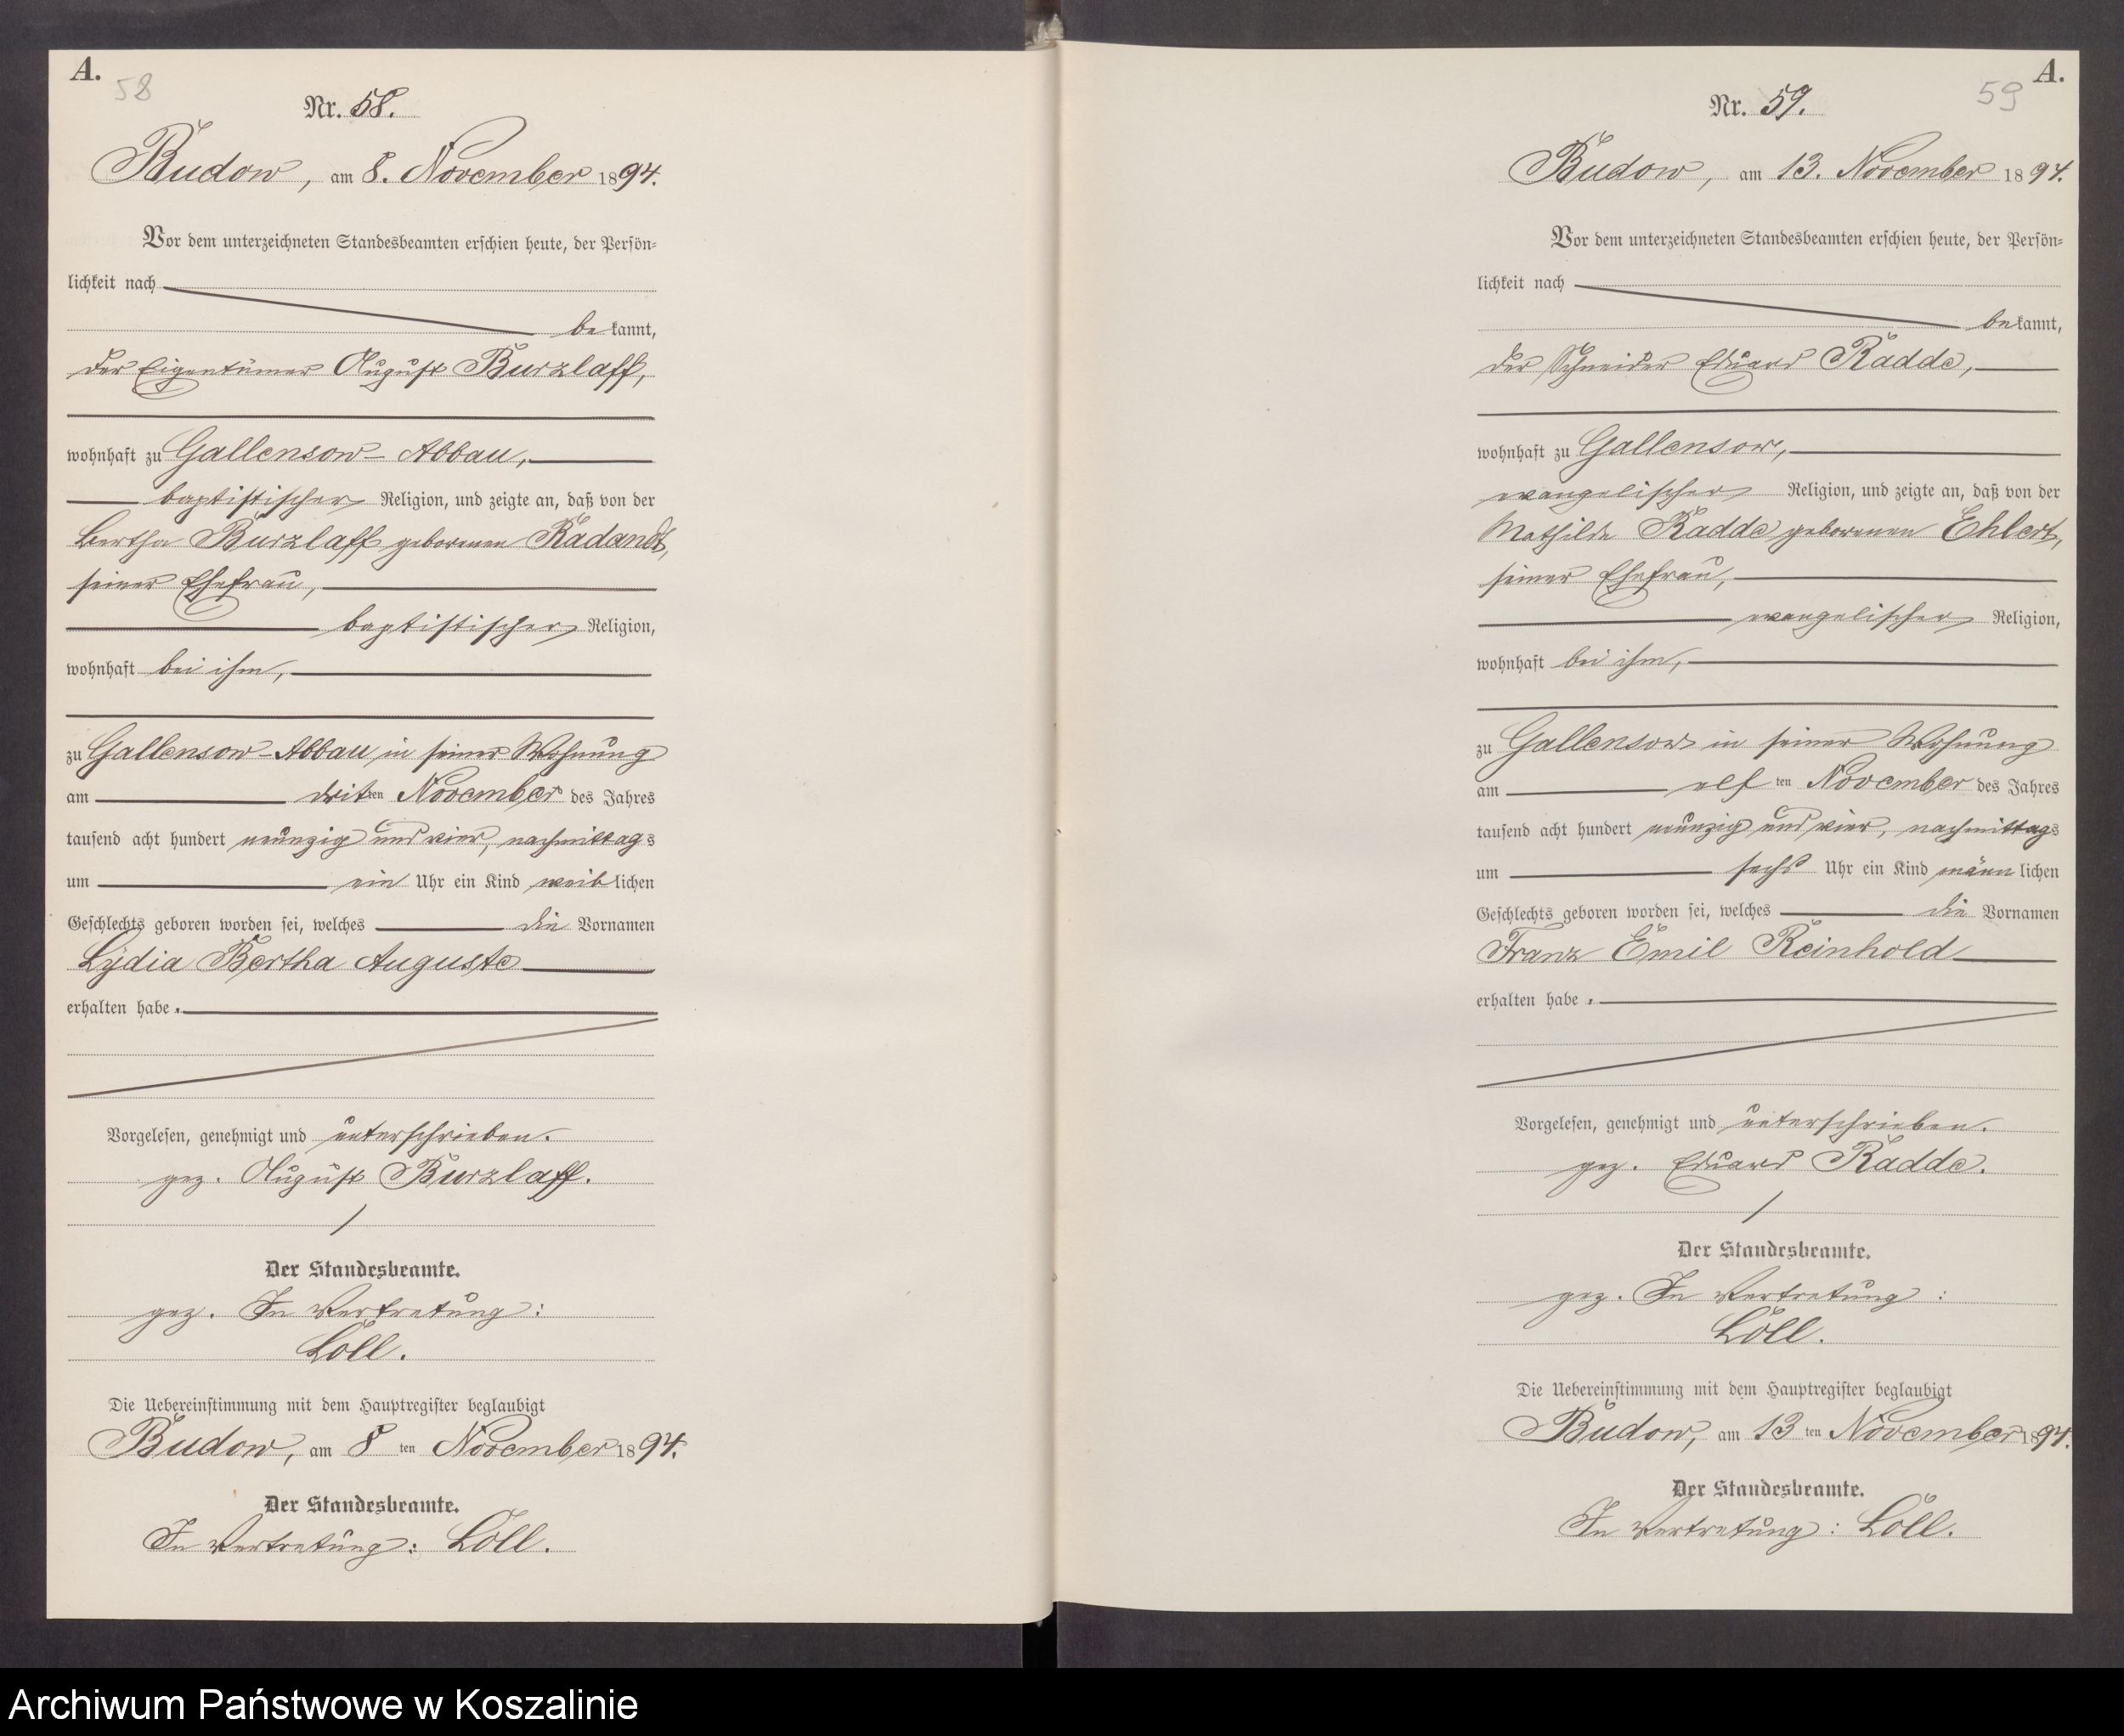 A.
58
Nr. 58.
Budow, am 8. November 1894.
Vor dem unterzeichneten Standesbeamten erschien heute, der Persön-
lichkeit nach
bekannt,
der Eigentümer August Burzlaff,
wohnhaft zu Gallensow-Abbau,
baptistischer Religion, und zeigte an, daß von der
Bertha Burzlaff geborenen Radandt,
seiner Ehefrau,
baptistischer Religion,
wohnhaft bei ihm,
zu Gallensow-Abbau in seiner Wohnung
am dritten November des Jahres
tausend acht hundert neunzig und vier, nachmittags
um ein Uhr ein Kind weiblichen
Geschlechts geboren worden sei, welches die Vornamen
Lydia Bertha Auguste
erhalten habe.
Vorgelesen, genehmigt und unterschrieben.
gez. August Burzlaff.
Der Standesbeamte.
gez. In Vertretung:
Löll.
Die Uebereinstimmung mit dem Hauptregister beglaubigt
Budow, am 8ten November 1894.
Der Standesbeamte.
In Vertretung: Löll.
A.
59
Nr. 59.
Budow, am 13. November 1894.
Vor dem unterzeichneten Standesbeamten erschien heute, der Persön-
lichkeit nach
bekannt,
der Schneider Eduard Radde,
wohnhaft zu Gallensow,
evangelischer Religion, und zeigte an, daß von der
Mathilde Radde geborenen Ehlert,
seiner Ehefrau,
evangelischer Religion,
wohnhaft bei ihm,
zu Gallensow in seiner Wohnung
am elften November des Jahres
tausend acht hundert neunzig und vier, nachmittags
um sechs Uhr ein Kind männlichen
Geschlechts geboren worden sei, welches die Vornamen
Franz Emil Reinhold
erhalten habe.
Vorgelesen, genehmigt und unterschrieben.
gez. Eduard Radde.
Der Standesbeamte.
gez. In Vertretung:
Löll.
Die Uebereinstimmung mit dem Hauptregister beglaubigt
Budow, am 13ten November 1894.
Der Standesbeamte.
In Vertretung: Löll.
Archiwum Państwowe w Koszalinie